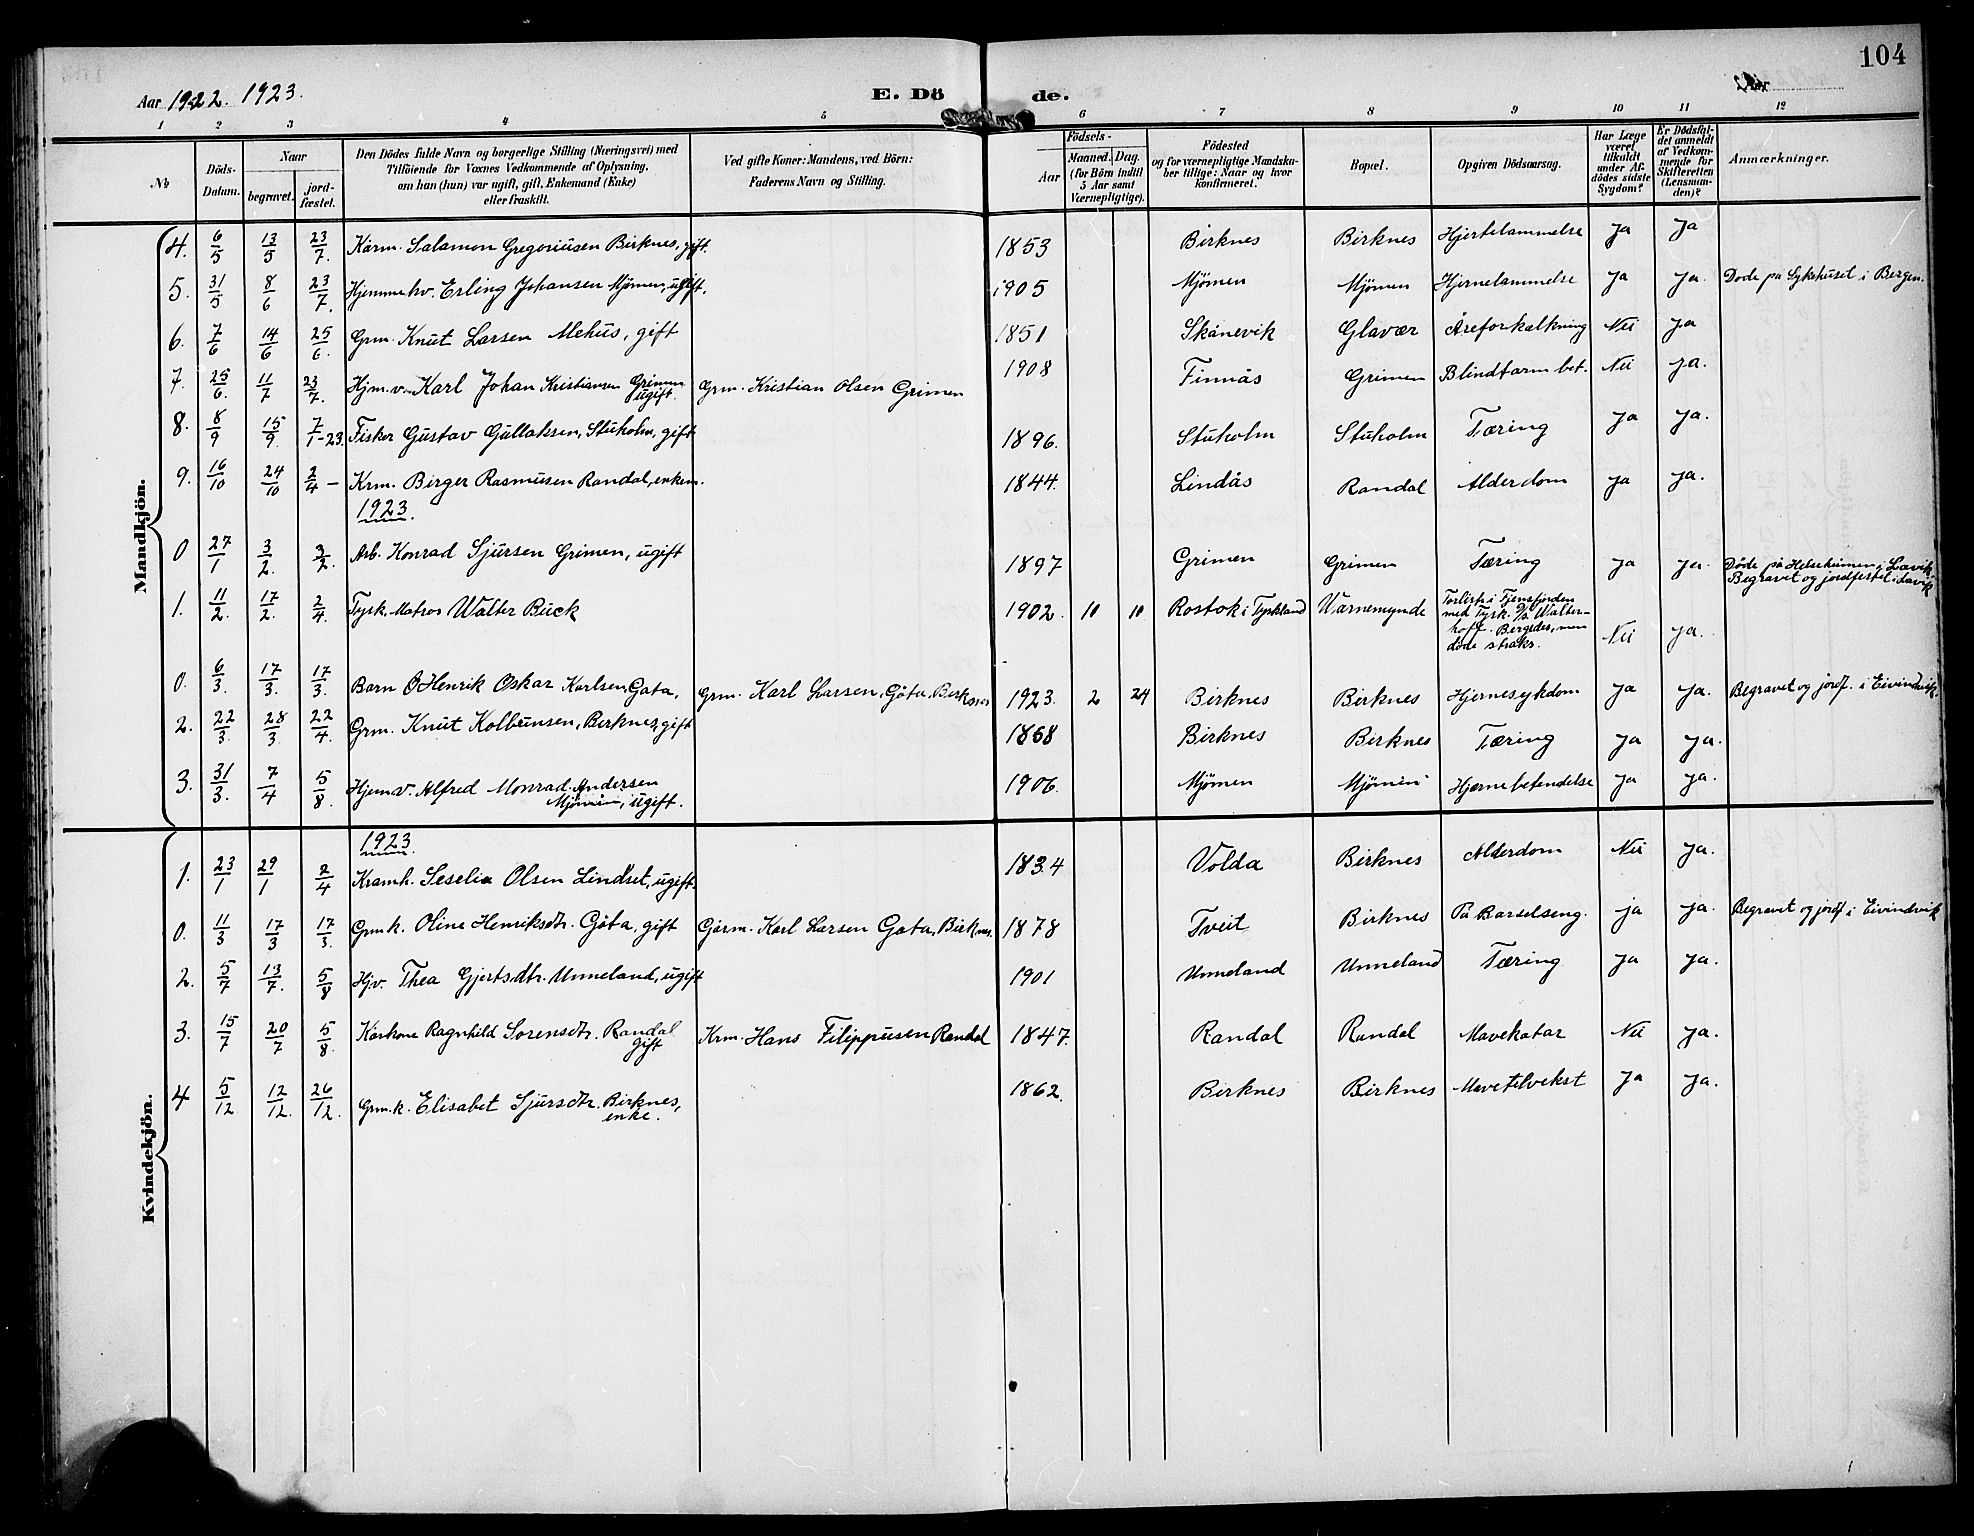 104
Aar 1922. 1923.
E. Dö de.
Aar
1 2 3 4 5 6 7 8 9 10 11 12
No
Döds-Datum.
Naar
begravet.
jord-fæstet.
Den Dödes fulde Navn og borgerlige Stilling (Næringsvei) med
Tilföiende for Voxnes Vedkommende af Oplysning,
om han (hun) var ugift, gift, Enkemand (Enke)
eller fraskilt.
Ved gifte Koner: Mandens, ved Börn:
Faderens Navn og Stilling.
Födsels-
Aar
Maaned. Dag.
(for Börn indtil
5 Aar samt
Værnepligtige).
Födested
og for værnepligtige Mandska-
ber tillige: Naar og hvor
konfirmeret.
Bopæl.
Opgiven Dödsaarsag.
Har Læge
været
tilkaldt
under Af-
dödes sidste
Sygdom?
Er Dödsfal-
det anmeldt
af Vedkom-
mende for
Skifteretten
(Lensman-
den)?
Anmærkninger.
Mandkjön.
4. 6/5 13/5 23/7 Karm. Salamon Gregoriusen Birknes, gift. 1853 Birknes Birknes Hjertelammelse ja ja
5. 31/5 8/6 23/7. Hjemmehv. Erling Johansen Mjömen, ugift. 1905 Mjömen Mjömen Hjernelammelse ja ja. Döde på Sykehuset i Bergen.
6. 7/6 14/6 25/6. Grm. Knut Larsen Mehus, gift 1851 Skånevik Glavær Åreforkalkning Nei ja
7. 25/6. 11/7 23/7. Hjm.v. Karl Johan Kristiansen Grimen ugift. Grm. Kristian Olsen Grimen 1908 Finnås Grimen Blindtarmbet. Nei ja.
8. 8/9 15/9. 7/1-23. Fisker Gustav Gullaksen, Stuholm, gift 1896. Stuholm Stuholm Tæring ja ja.
9. 16/10 24/10 2/4 - Krm. Birger Rasmusen Randal, enkem. 1844. Lindås Randal Alderdom ja ja.
1923.
0 27/1 3/2. 3/2. Arb. Konrad Sjursen Grimen, ugift 1897 Grimen Grimen Tæring ja ja. Döde på Helseheimen i Lavik. Begravet og jordfestet i Lavik
1. 11/2. 17/2. 2/4. Tysk. Matros Walter Buck 1902. 10 10 Rostok i Tyskland Warnemynde Forliste i Fjensfjorden
med Tysk. D/s. Walter-
hoff. Bergedes, men
döde straks. Nei ja.
0. 6/3. 17/3. 17/3. Barn O Henrik Oskar Karlsen, Gota, Grm. Karl Larsen, Göta, Birknes 1923. 2 24 Birknes Birknes Hjernesykdom ja ja. Begravet og jordf. i Eivindvik
2. 22/3. 28/3. 22/4. Grm. Knut Kolbeinsen, Birknes, gift 1868 Birknes Birknes Tæring ja ja.
3. 31/3. 7/4 5/8. Hjemv. Alfred Monrad Andersen
Mjömen, ugift. 1906. Mjömen Mjömen Hjernebetendelse ja ja.
Kvindekjön.
1923
1. 23/1 29/1 2/4 Kramh. Seselie Olsen Lindset, ugift. 1834 Volda Birknes Alderdom Nei ja.
0. 11/3 17/3 17/3. Grm k. Oline Henriksdtr. Göta, gift Garm. Karl Larsen Gota, Birknes. 1878 Tveit Birknes På Barselseng. ja ja. Begravet og jordf i Eivindvik
2. 5/7 13/7. 5/8 Hjv. Thea Gjertsdtr. Unneland, ugift 1901 Unneland Unneland Tæring ja ja.
3. 15/7 20/7 5/8. Karkone Ragnhild Sorensdtr. Randal
gift Krm. Hans Filippusen Randal 1847. Randal Randal Mavekatar Nei ja.
4 5/12 12/12. 26/12. Grm.k. Elisabet Sjursdtr. Birknes,
enke. 1862. Birknes Birknes Mavetilvekst ja ja.